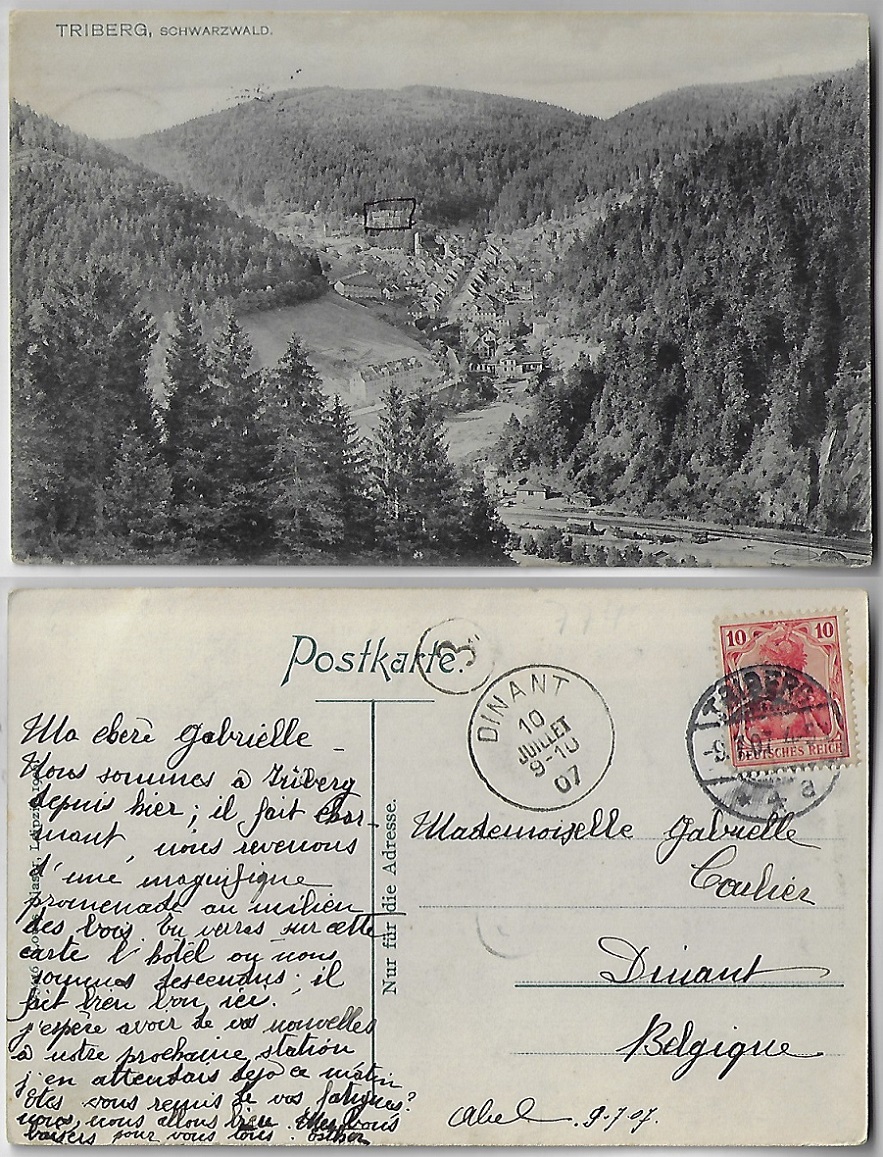 TRIBERG, SCHWARZWALD.
Postkarte.
3.
DINANT
10
JUILLET
9-10
07
10 10
DEUTSCHES REICH
TRIBERG
a
Ma chère Gabrielle
Nous sommes à Triberg
depuis hier ; il fait char-
mant, nous revenons
d'une magnifique
promenade au milien
des bois tu verras sur cette
carte l'hôtel où nous
sommes descendus ; il
fait bien bon ici.
j'espère avoir de vos nouvelles
à notre prochaine station
j'en attendais déjà ce matin
êtes vous remis de vos fatigues?
nous, nous allons bien. bons
baisers pour vous tous. Esther
Nur für die Adresse.
Glaser, Leipzig
Mademoiselle Gabrielle
Coulier
Dinant
Belgique
Abel 9-7-07.